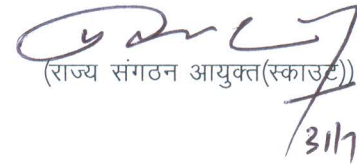 (राज्य संगठन आयुक्त(स्काउट))
31/7